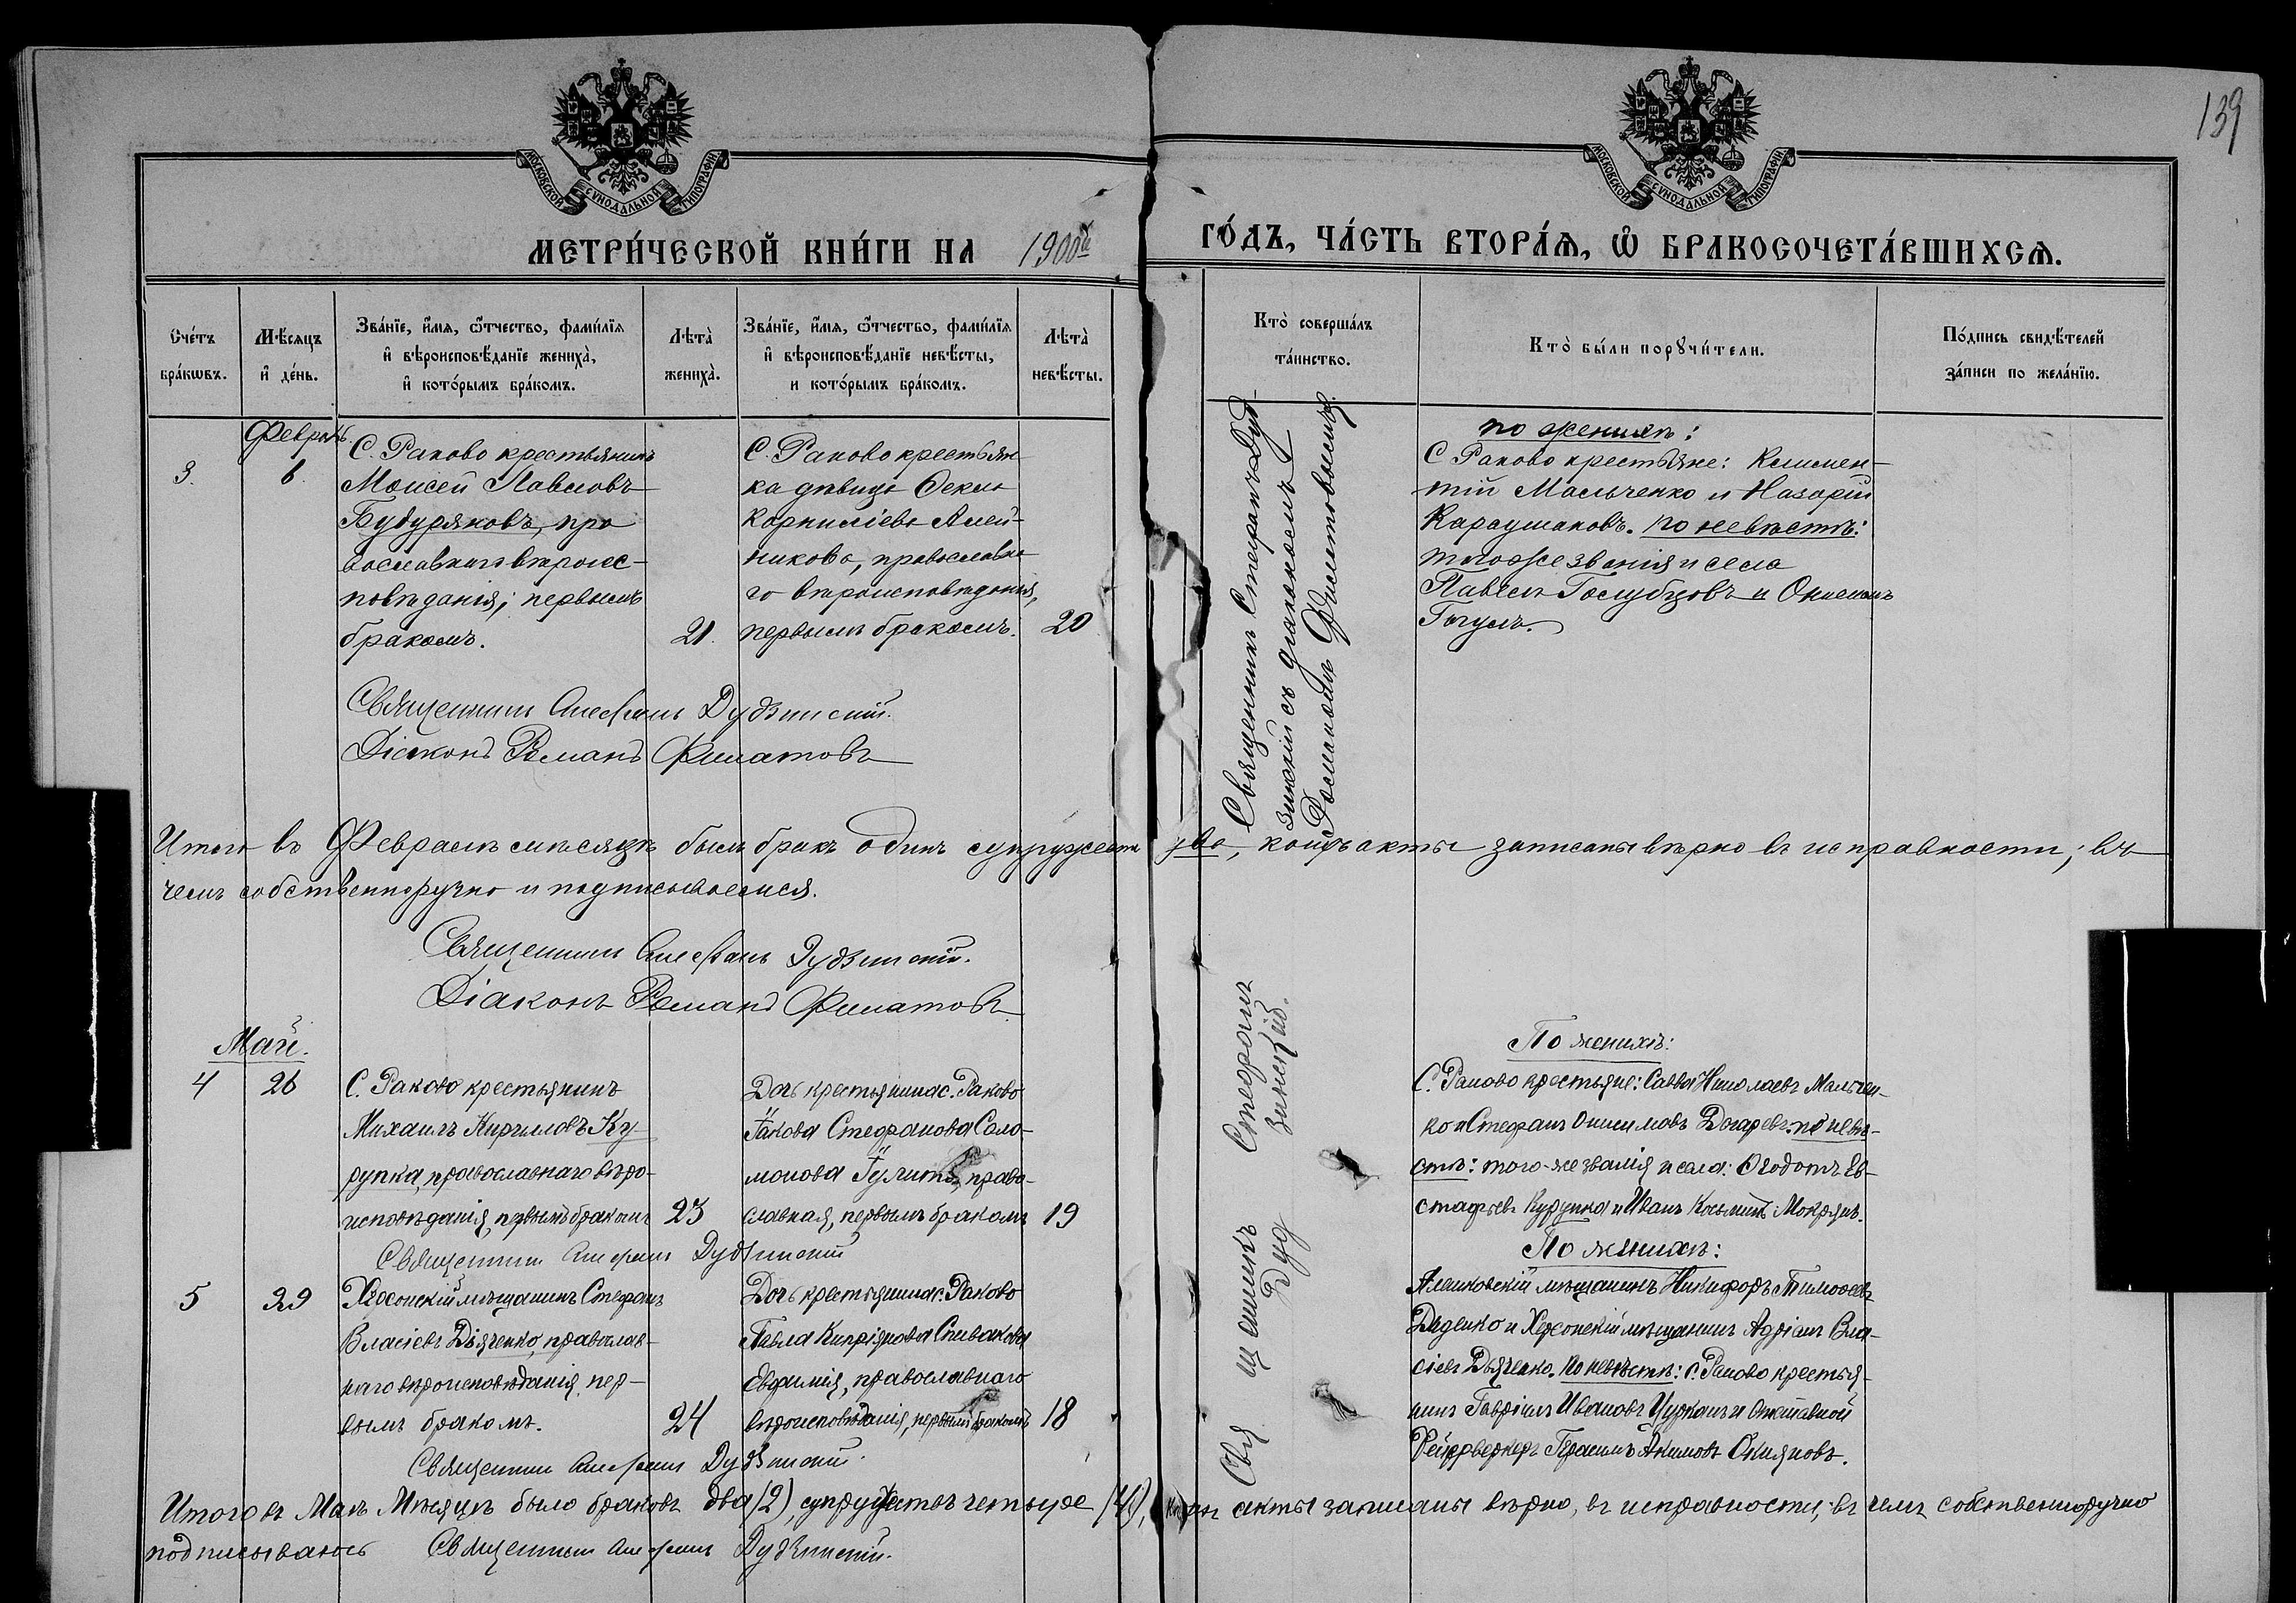 139
МОСКОВСКОЙ СѴНОДАЛЬНОЙ ТИПОГРАФІИ
МОСКОВСКОЙ СѴНОДАЛЬНОЙ ТИПОГРАФІИ
МЕТРИ́ЧЕСКОЙ КНИ́ГИ НА 1900й ГО́ДЪ, ЧА́СТЬ ВТОРА́Ѧ, Ѽ БРАКОСОЧЕТА́ВШИХСѦ.
Сче́тъ
бра́кѡвъ.
Мѣ́сяцъ
и҆ де́нь.
Зва́нїе, и҆́мѧ, ѻ҆́тчество, фами́лїѧ
и҆ вѣроисповѣ́данїе жениха̀,
и҆ кото́рымъ бра́комъ.
Лѣта̀
жениха̀.
Зва́нїе, и҆́мѧ, ѻ҆́тчество, фами́лїѧ
и҆ вѣроисповѣ́данїе невѣ́сты,
и кото́рымъ бра́комъ.
Лѣта̀
невѣ́сты.
Кто̀ соверша́лъ
та́инство.
Кто̀ бы́ли порꙋчи́тели.
По́дпись свидѣ́телей
за́писи по жела́нїю.
3. 6.
С. Раково крестьянинъ
Моисей Павловъ
Бубуряковъ, пра
вославнаго вѣроис-
повѣданія; первымъ
бракомъ.
21.
С. Раково крестьян
ка дѣвица Ѳекла
Корниліева Алей-
никова, православна
го вѣроисповѣданія,
первымъ бракомъ.
20
Священникъ Стефанъ Дуд-
зинскій съ діакономъ
Романомъ Филатовымъ.
по женихѣ:
С Раково крестьяне: Климен-
тій Мальченко и Назарій
Караушановъ. по невѣстѣ:
того же званія и села
Павелъ Голубцовъ и
Священникъ Стефанъ Дудзинскій.
Діаконъ Романъ Филатовъ
Итого въ Февралѣ мѣсяцѣ былъ бракъ одинъ супружества два, коихъ акты записаны вѣрно въ исправности; въ
чемъ собственноручно и подписываемся.
Священникъ Стефанъ Дудзинскій.
Діаконъ Романъ Филатовъ
Май.
4 26
С. Раково крестьянинъ
Михаилъ Кирилловъ Ку-
рупка, православнаго вѣро-
исповѣданія, первымъ бракомъ
23
Дочь крестьянина с. Раково
Іакова Стефанова Соло-
монова православная, первымъ бракомъ
19
Священникъ Стефанъ
Дудзинскій.
По женихѣ:
С. Раково крестьяне: Савва Николаевъ Мальчен-
ко и Стефанъ Онисимовъ Дегаревъ. по невѣ-
стѣ: того-же званія и села: Ѳеодотъ Ев-
стафьевъ Курупка и Иванъ Косьминъ Мокрякъ.
Священникъ Стефанъ Дудзинскій
5 29
Херсонскій мѣщанинъ Стефанъ
Власіевъ Дьяченко, православ-
наго вѣроисповѣданія, пер-
вымъ бракомъ.
24
Дочь крестьянина с. Раково
Павла Кипріянова Спивакова
Евфимія, православнаго
вѣроисповѣданія, первымъ бракомъ
18
По женихѣ:
Алешковскій мѣщанинъ Никифоръ Тимоѳеевъ
Деденко и Херсонскій мѣщанинъ Адріанъ Вла-
сіевъ Дьяченко. По невѣстѣ: с. Раково крестья-
нинъ Гавріилъ Ивановъ Цурканъ и отставной
Фейерверкеръ Герасимъ Акимовъ
Священникъ Стефанъ Дудзинскій.
Итого въ Маѣ Мѣсяцѣ было браковъ два (2), супружествъ четыре (4), коихъ акты записаны вѣрно, въ исправности, въ чемъ собственноручно
подписываюсь Священникъ Стефанъ Дудзинскій.